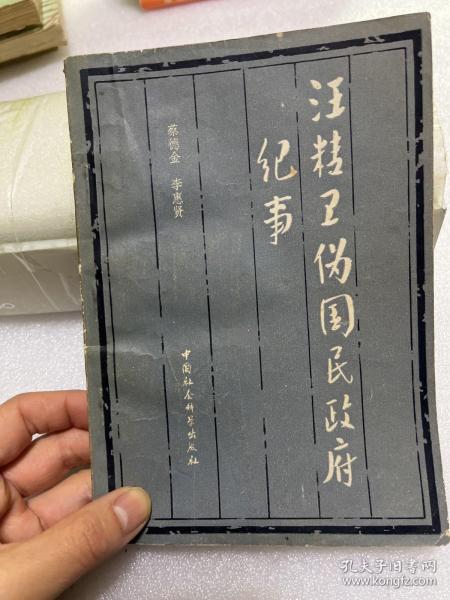 汪精卫伪国民政府
纪事
蔡德金 李惠贤
中国社会科学出版社
孔夫子旧书网
www.kongfz.com